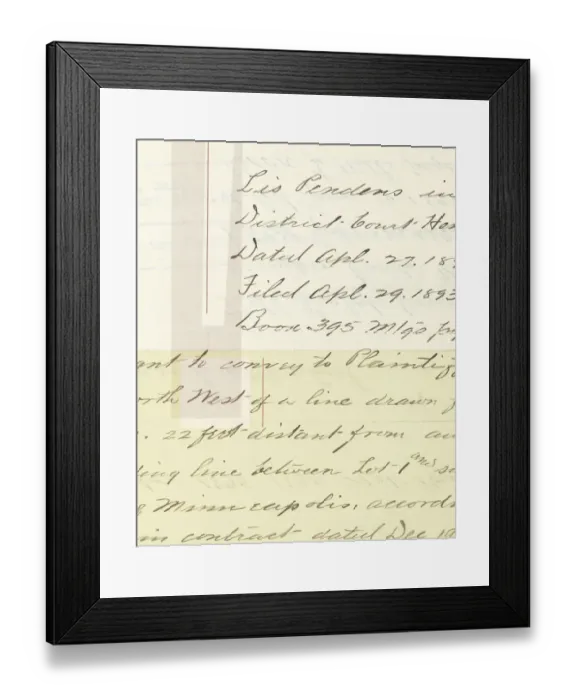 Lis Pendens in
District Court Hen
Dated Apl. 27. 189
Filed Apl. 29. 1893
Book 395 Mtgs
ant to convey to Plaintiff
orth West of a line drawn
. 22 feet distant from an
ing line between Lot 1 and
Minneapolis, accord
in contract dated Dec 19